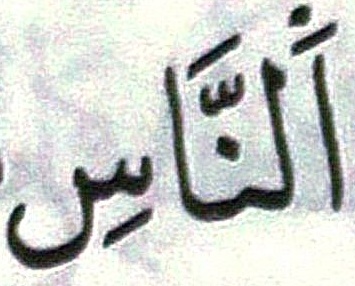 اَلنَّاسِ